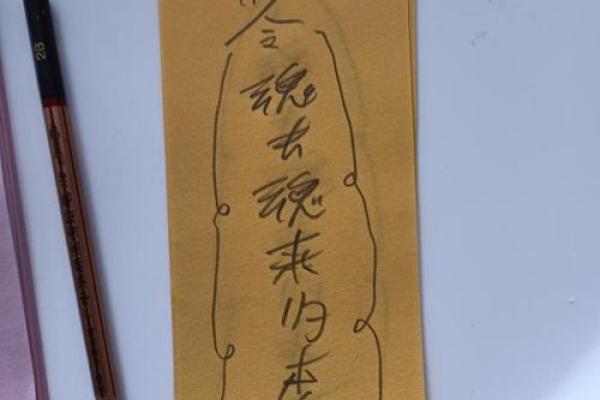 令魂去魂来归本
2B